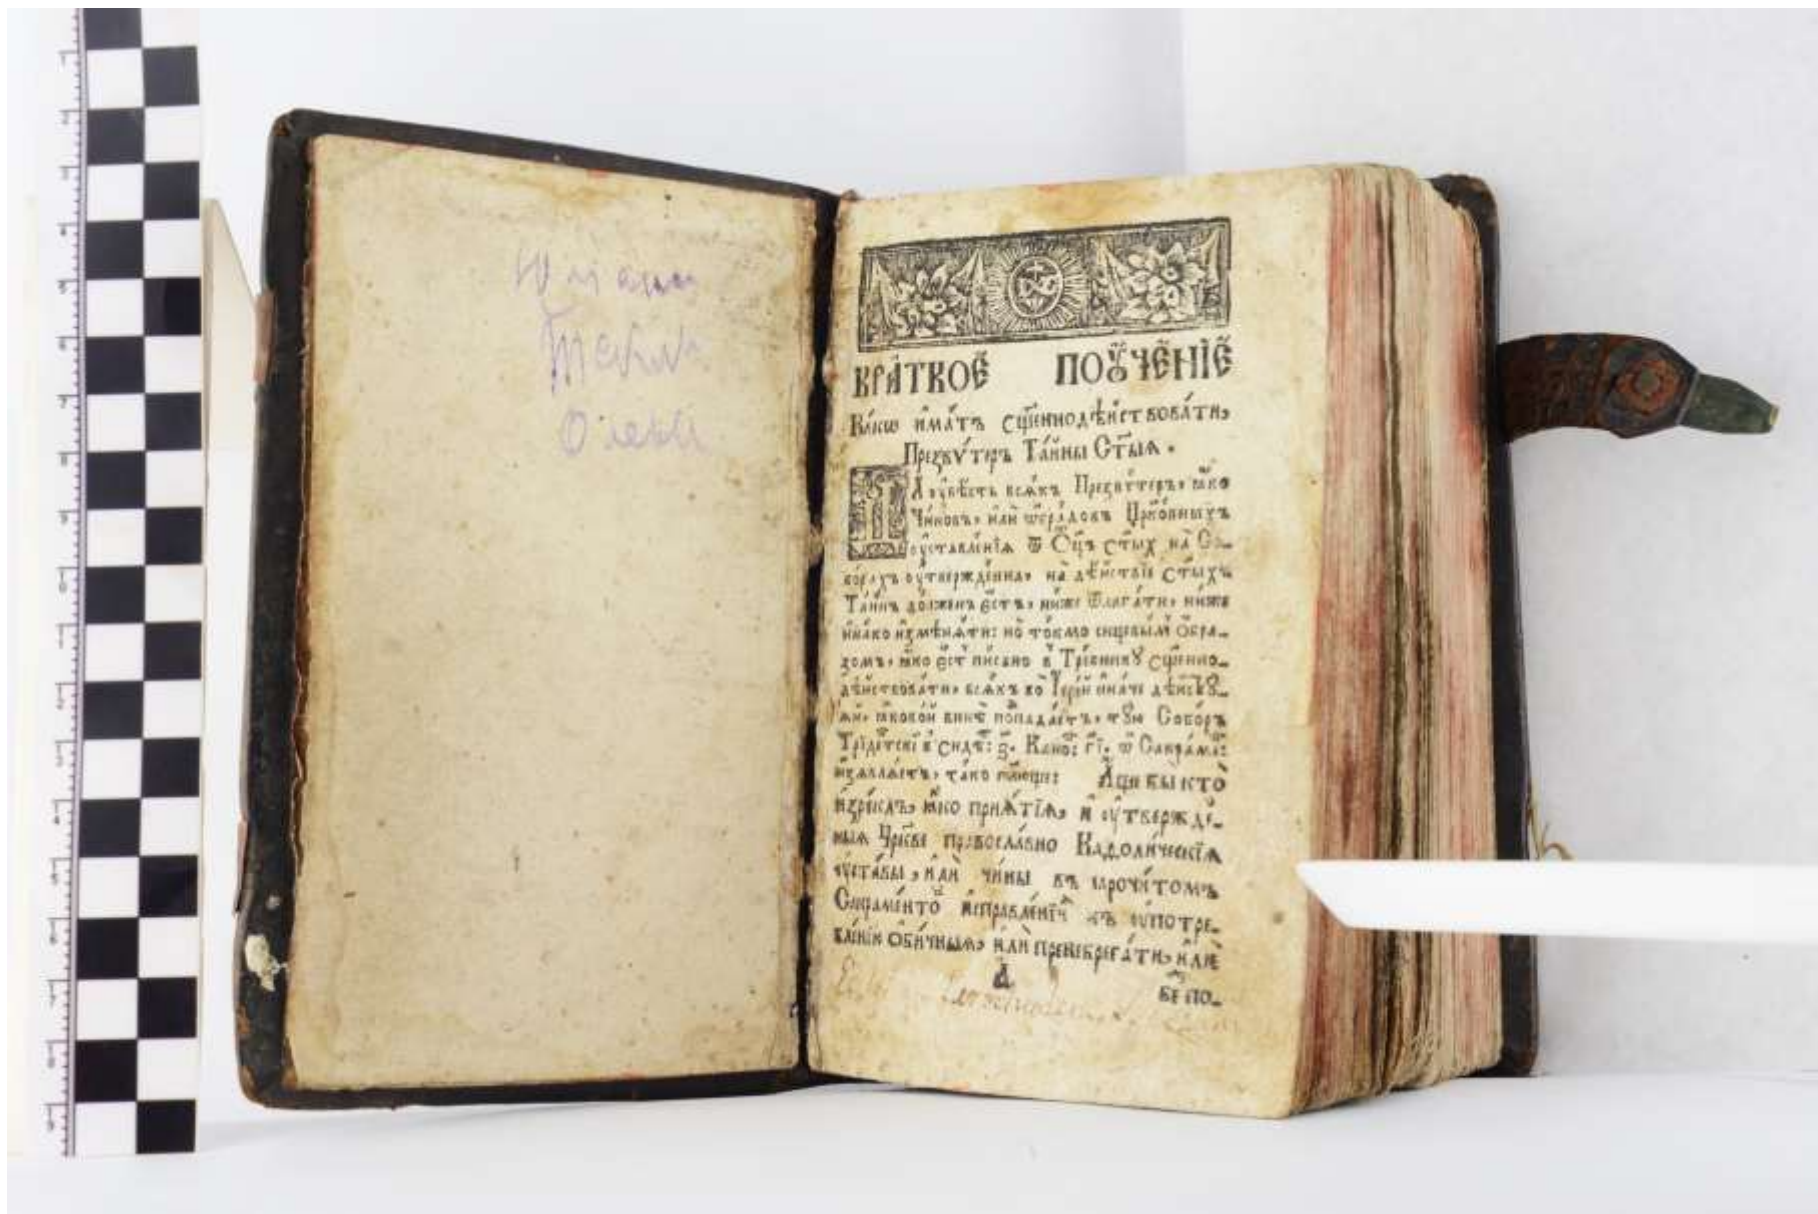 Оле
КРА́ТКОЕ ПОꙊЧЕ́НЇЕ
Ка́кѡ и҆ма́тъ сщ҃еннодѣ́йствовати,
Презвѵ́теръ Та́йны Ст҃ы́ѧ.
Да ᲂувѣ́сть всѧ́къ Презвѵ́теръ, ꙗ҆́ко
Чино́въ, или ѡ҆брѧ́довъ Црко́вныхъ
ᲂуставле́нїѧ ѿ Ѻц҃ъ ст҃ых на Со-
бо́рахъ ᲂутвержде́нна, на дѣ́йствїе ст҃ы́хъ
Та́инъ до́лженъ є҆́стъ, ниже ѿлага́ти, ниже
и҆на́ко и҆змѣнѧ́ти: но то́кмо сицевы́м ѻбра-
зомъ, ꙗ҆́ко є҆́ст пи́сано в Тре́бникꙋ сщ҃енно-
дѣ́йствовати, всѧ́къ бо І҆ере́й и҆на́че дѣ́йствꙋ-
ѧй, ꙗ҆ково́й винѣ̀ попада́етъ, тꙋ́ю Собо́ръ
Тридѣ́тскїй в сидѣ: з҃. Кано́: г҃ї. ѿ Сакра́ме:
и҆з̾ѧвлѧ́етъ, та́ко гл҃юще: А҆́ще бы кто̀
и҆зре́клъ, ꙗ҆́ко приѧ́тїѧ, и ᲂутвержде́-
ныѧ Цр҃кве правосла́вно Каѳоли́ческїѧ
ᲂуста́вы, и҆лѝ чи́ны въ нарочи́томъ
Сакраме́нтѡ и҆справле́нїи къ ᲂупотре-
бле́нїи ѻ҆бы́чныѧ, и҆лѝ пренебрега́ти, и҆лѝ
А
бе по-